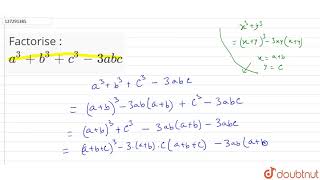 127291385
Factorise :
a³ + b³ + c³ − 3abc
x³+y³
= (x+y)³ − 3xy(x+y)
x = a+b
y = c
a³ + b³ + c³ − 3abc
= (a+b)³ − 3ab(a+b) + c³ − 3abc
= (a+b)³ + c³ − 3ab(a+b) − 3abc
= (a+b+c)³ − 3·(a+b)·c(a+b+c) − 3ab(a+b)
doubtnut